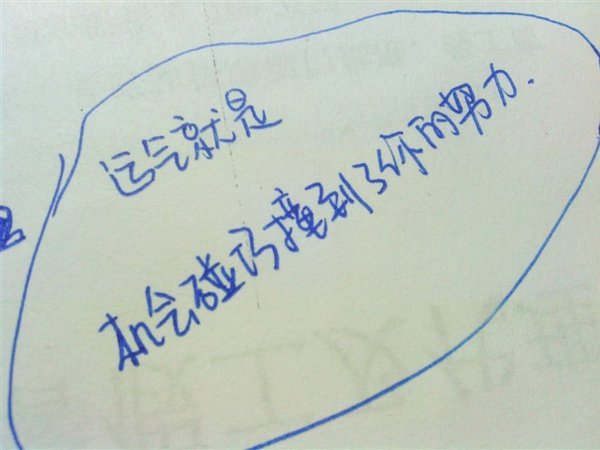 运气就是
机会碰巧撞到了你的努力.